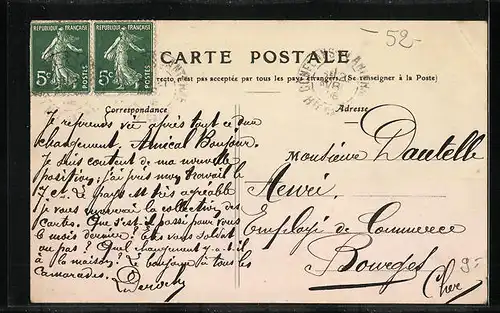 52-
REPUBLIQUE FRANÇAISE REPUBLIQUE FRANÇAISE
5c 5c
CARTE POSTALE
recto n'est pas acceptée par tous les pays étrangers. (Se renseigner à la Poste)
Correspondance
Adresse
Je reprends vie après tout ce
changement. Amical Bonjour.
Je suis content de ma nouvelle
position, j'ai pris mon travail le
7 ct. Le pays est très agréable
je vous enverrai la collection des
cartes. Que s'est-il passé pour vous
6 mois dernier? Êtes vous soldat
ou pas? Quel changement y-a-t-il
à la maison? Le bonjour à tous les
camarades.
Monsieur Dautelle
Henri
Employé de Commerce
Bourges
Cher
9-